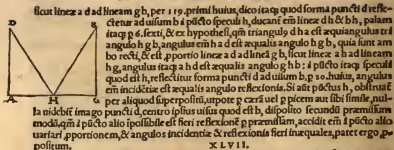 sicut lineæ a d ad lineam g b, per 119. primi huius, dico itaq; quod forma puncti d refle-
D B ctetur ad uisum b à pūcto speculi h, ducantur em̄ lineæ d h & b h, palam
itaq; p 6. sexti, & ex hypothesi, qm̄ triangulꝰ d h a est æquiangulus tri
angulo h g b, angulus em̄ h a d est æqualis angulo h g b, quia sunt am
bo recti, & est pportio lineæ a d ad lineā g b, sicut lineæ a h ad lineam
h g, angulus itaq; a h d est æqualis angulo g h b: à pūcto itaq; speculi
quod est h, reflectitur forma puncti d ad uisum b, p 20. huius, angulus
em̄ incidētiæ est æqualis angulo reflexionis. Si aūt pūctus h, obstruat
A H G per aliquod superpositū, utpote p cærā uel p picem aut sibi simile, nul-
la uidebit̄ imago puncti d, centro ipsius uisus quod est b, disposito secundū præmissum
modū, qm̄ à pūcto alio ipossibile est fieri reflexionē p præmissam, accidit em̄ à pūcto alio
uariari pportionem, & angulos incidentiæ & reflexionis fieri inæquales, patet ergo p-
positum.
XLVII.